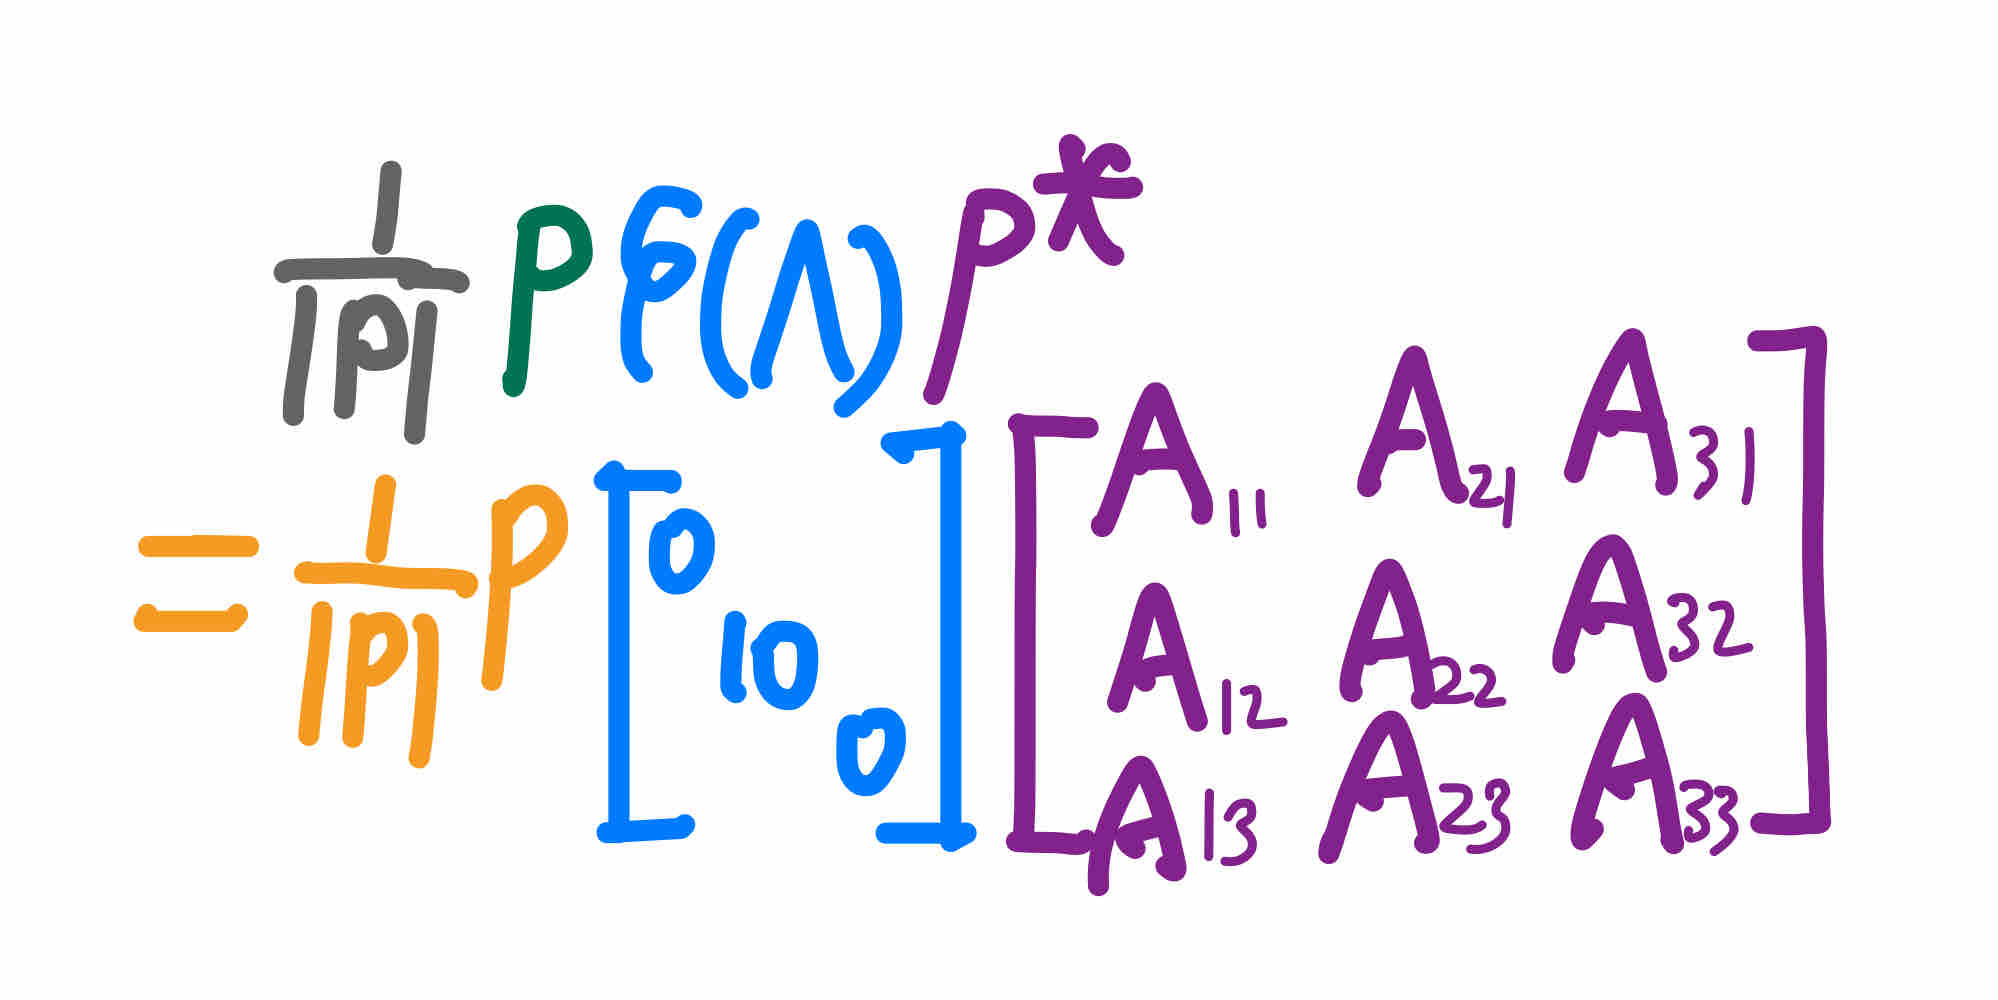 1/|P| P φ(Λ) P*
= 1/|P| P [0 10 0] [A11 A21 A31
A12 A22 A32
A13 A23 A33]